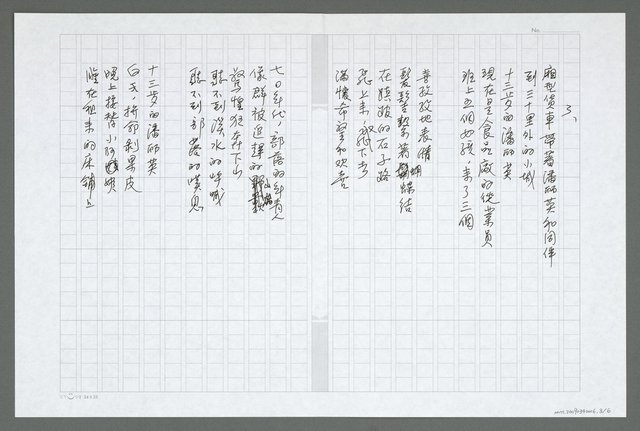 No.
3、
廂型貨車帶著潘丽英和同伴
到三十里外的小城
十三岁的潘丽英
現在是食品廠的從業員
班上五個女孩，來了三個
喜孜孜地表情
髮髻紮著蝴蝶結
在顛簸的石子路
飛上来飛下去
滿懷希望和欢喜
七〇年代，部落的年青人
像群被追趕的
驚惶狂奔下山
聽不到溪水的呼喊
聽不到部落的嘆息
十三岁的潘丽英
白天，拚命剝果皮
晚上接替小阿姨
睡在租来的床鋪上